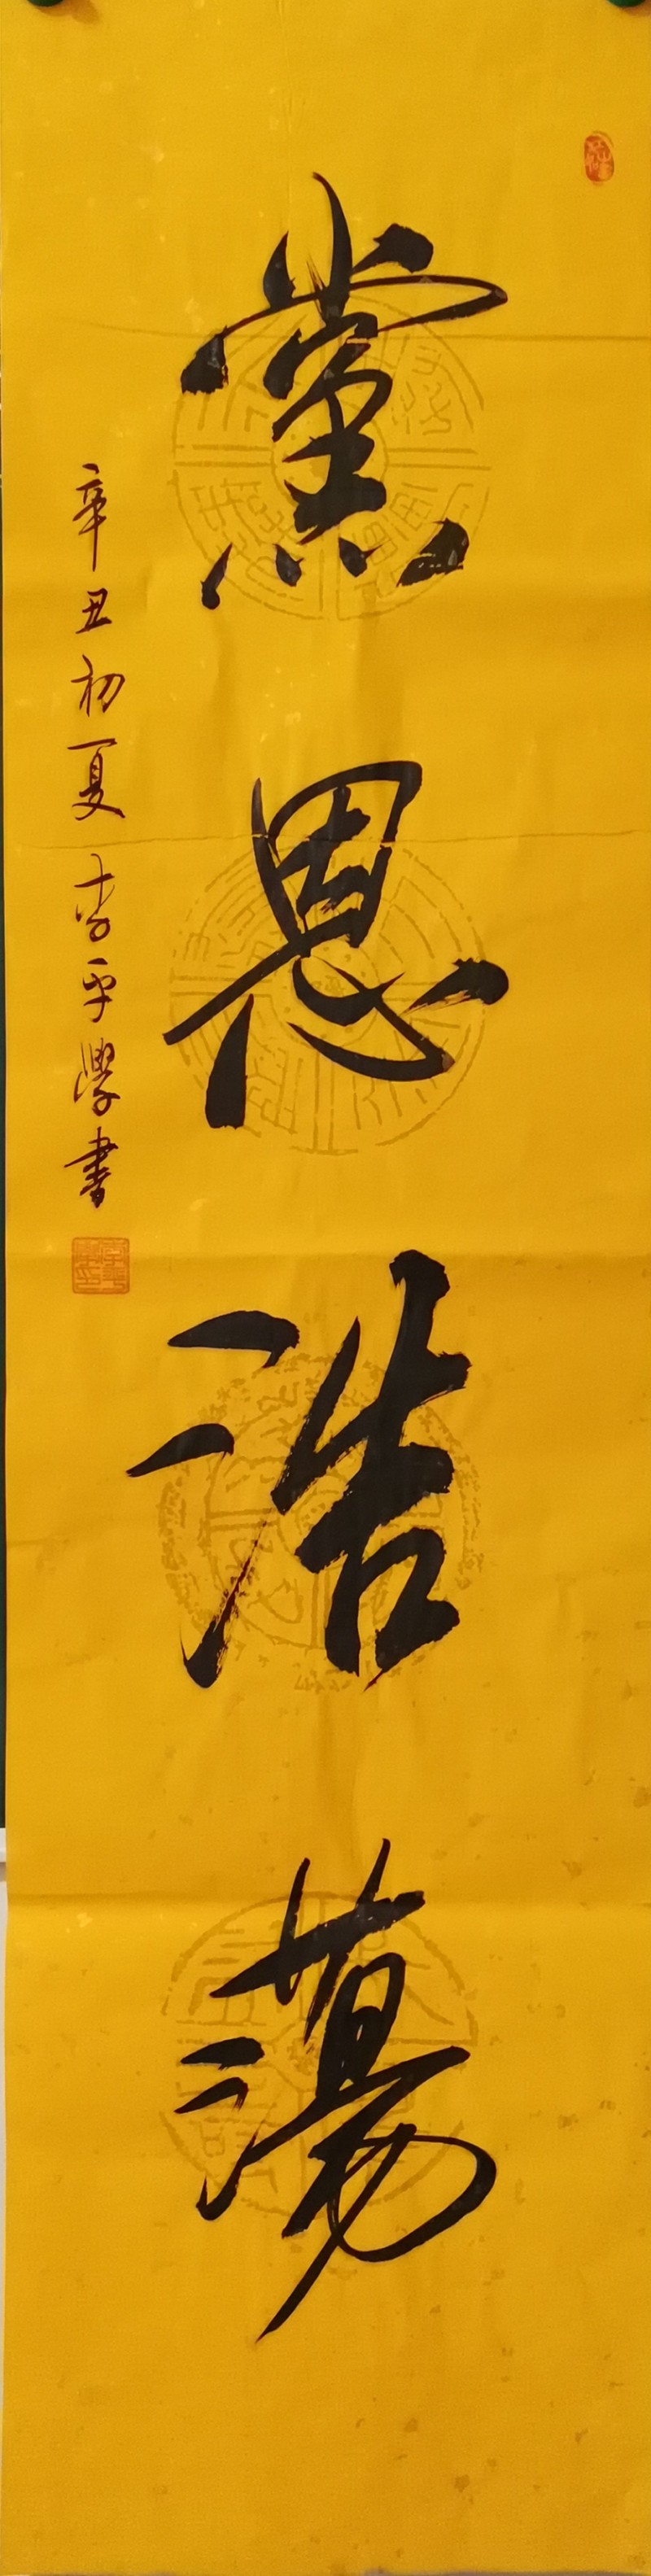 黨恩浩蕩
辛丑初夏 李平學書